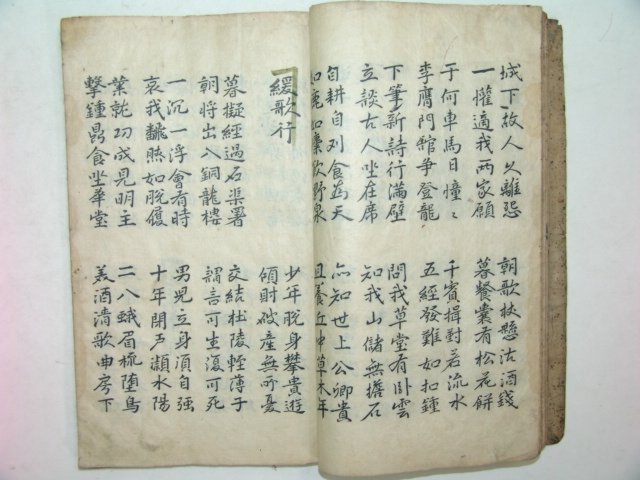 城下故人久離怨
一懽適我兩家願
朝歌杖懸沽酒錢
暮餐囊有松花餅
于何車馬日憧〻
李膺門館爭登龍
千賓揖對若流水
五經發難如扣鍾
下筆新詩行滿壁
立談古人坐在席
問我草堂有臥雲
知我山儲無擔石
自耕自刈食為天
如鹿如麋飮野泉
亦知世上公卿貴
且養丘中草木年
緩歌行
少年脫身攀貴遊
傾財破產無所憂
暮擬經過石渠署
朝將出入銅龍樓
交結杜陵輕薄子
謂言可生復可死
一沉一浮會有時
哀我飜然如脫屐
男兒立身須自强
十年閉戶潁水陽
業就功成見明主
擊鍾鼎食坐華堂
二八蛾眉梳墮烏
美酒清歌曲房下